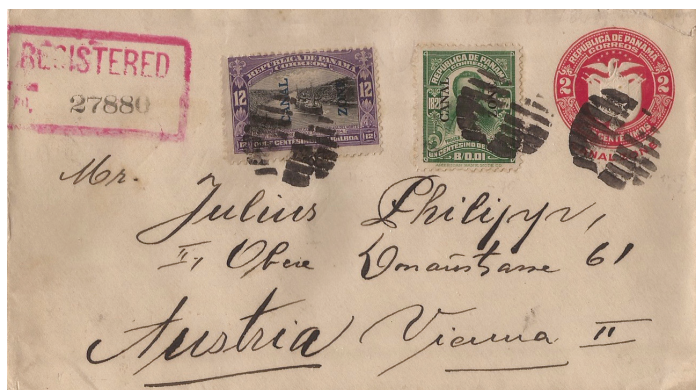 REGISTERED
27880
REPUBLICA DE PANAMA
CORREOS
12 12
CANAL
ZONE
CENTESIMOS
REPUBLICA DE PANAMA
CORREOS
CANAL
1821
UN CENTÉSIMO DE
B/0.01
REPUBLICA DE PANAMA
CORREOS
2 2
Mr.
Julius Philipp,
II, Obere Donaustrasse 61
Austria Vienna II